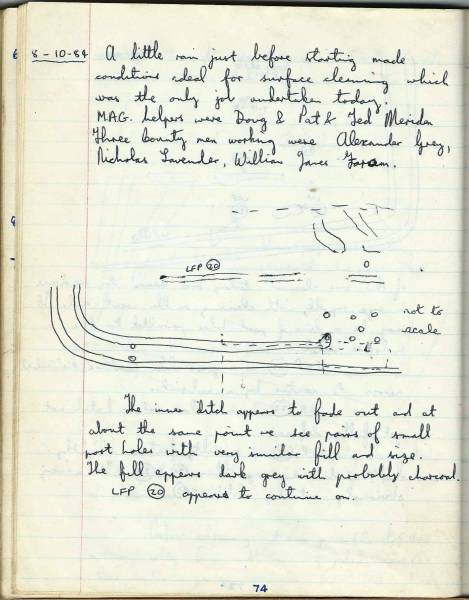 8-10-84 A little rain just before starting made
conditions ideal for surface cleaning which
was the only job undertaken today.
M.A.G. helpers were Doug & Pat & Ted Meriden
Three County men working were Alexander Grey,
Nicholas Lavender, William James
LFP 20
not to
scale
The inner ditch appears to fade out and at
about the same point we see pairs of small
post holes with very similar fill and size.
The fill appears dark grey with probably charcoal.
LFP 20 appears to continue on.
74